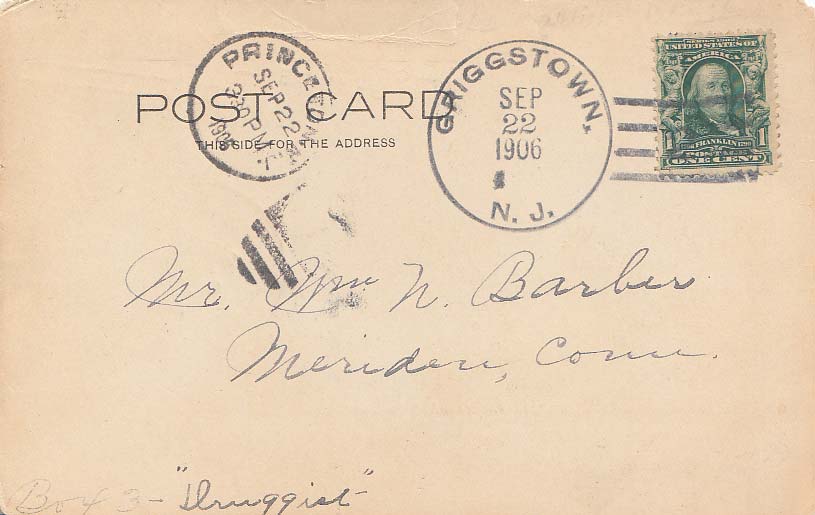 PRINCETON, N.J.
SEP 22
3:30 PM
1906
POST CARD
THIS SIDE FOR THE ADDRESS
GRIGGSTOWN,
SEP
22
1906
N. J.
SERIES 1902
UNITED STATES OF
AMERICA
1 FRANKLIN 1790 1
POSTAGE
ONE CENT
Mr. Wm N. Barber
Meriden, Conn.
Box 3 - "Druggist"